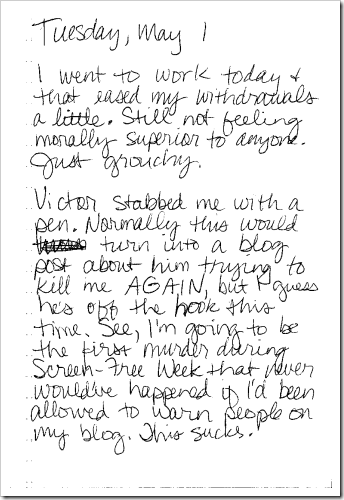 Tuesday, May 1
I went to work today &
that eased my withdrawals
a little. Still not feeling
morally superior to anyone.
Just grouchy.
Victor stabbed me with a
pen. Normally this would
turn into a blog
post about him trying to
kill me AGAIN, but I guess
he's off the hook this
time. See, I'm going to be
the first murder during
Screen-Free Week that never
would've happened if I'd been
allowed to warn people on
my blog. This sucks.